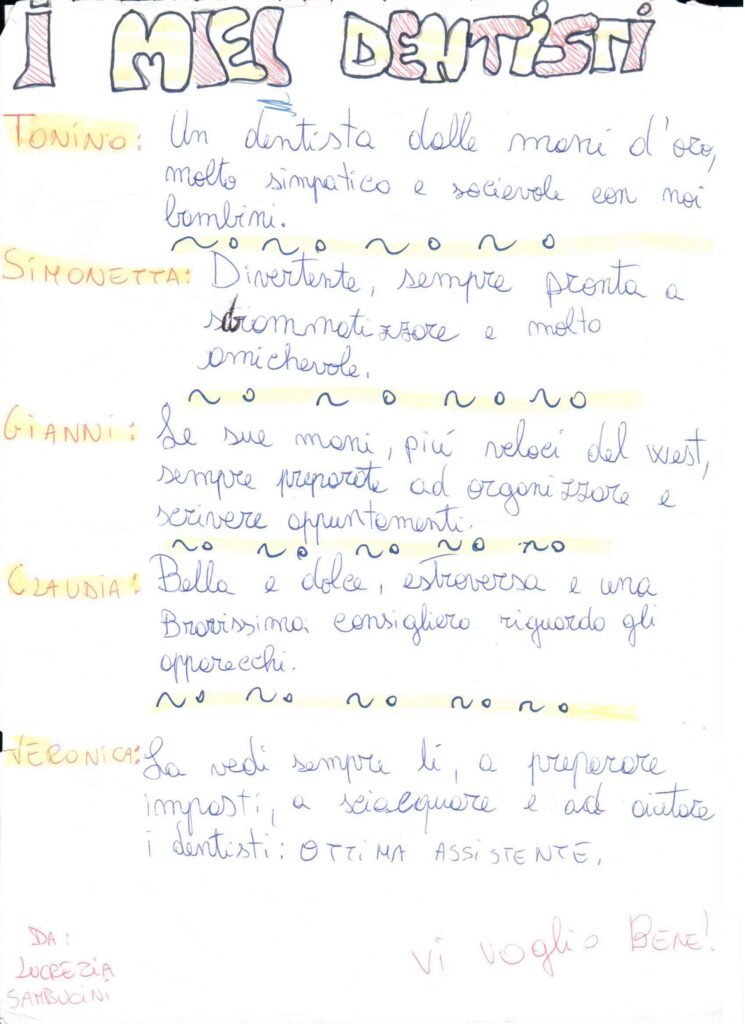 I MIEI DENTISTI
TONINO: Un dentista dalle mani d'oro,
molto simpatico e socievole con noi
bambini.
SIMONETTA: Divertente, sempre pronta a
sdrammatizzare e molto
amichevole.
GIANNI: Le sue mani, piú veloci del west,
sempre preparate ad organizzare e
scrivere appuntamenti.
CLAUDIA: Bella e dolce, estroversa e una
Bravissima consigliera riguardo gli
apparecchi.
VERONICA: La vedi sempre lí, a preparare
impasti, a sciacquare e ad aiutare
i dentisti: OTTIMA ASSISTENTE.
DA:
LUCREZIA
SAMBUCINI
Vi voglio BENE!